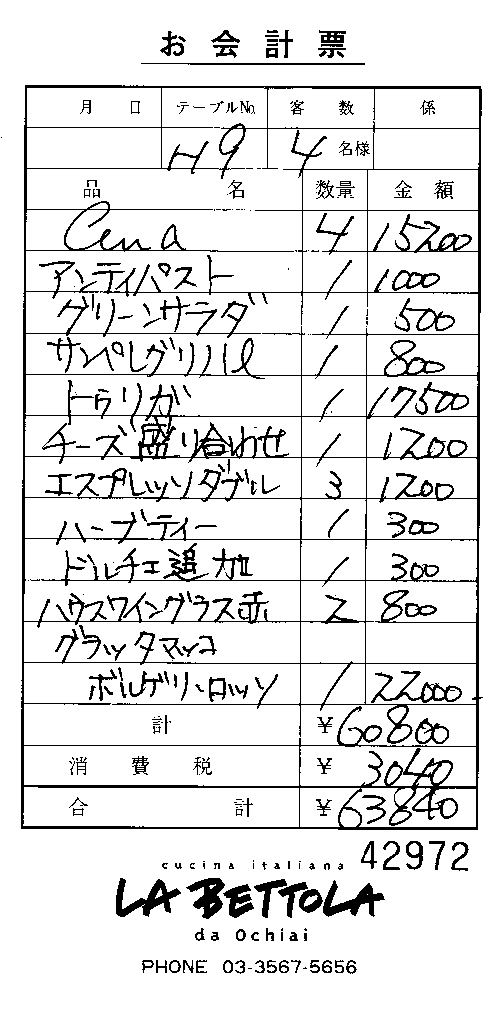 お会計票
月 日 テーブルNo. 客 数 係
H9 4 名様
品 名 数量 金 額
Cena 4 15200
アンティパスト 1 1000
グリーンサラダ 1 500
サンペレグリノハl 1 800
トゥリガ 1 17500
チーズ盛り合わせ 1 1200
エスプレッソダブル 3 1200
ハーブティー 1 300
ドルチェ追加 1 300
ハウスワイングラス赤 2 800
グラッタマッコ
ボルゲリ・ロッソ 1 22000
計 ¥60800
消 費 税 ¥3040
合 計 ¥63840
42972
cucina italiana
LA BETTOLA
da Ochiai
PHONE 03-3567-5656